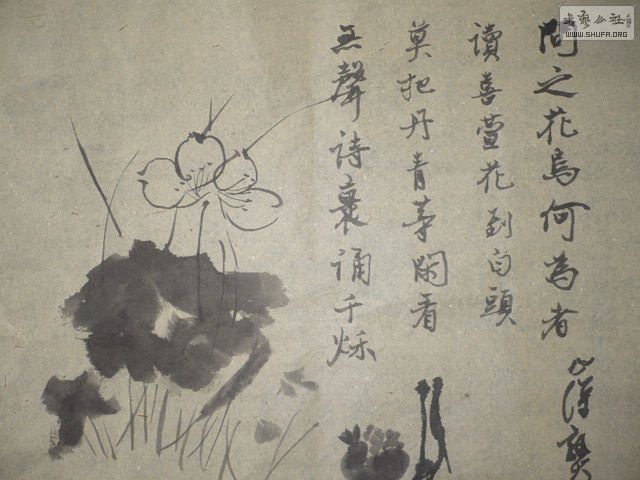 問之花鳥何為者
讀喜萱花到白頭
莫把丹青等閑看
无聲詩裏誦千秋
書藝公社
WWW.SHUFA.ORG